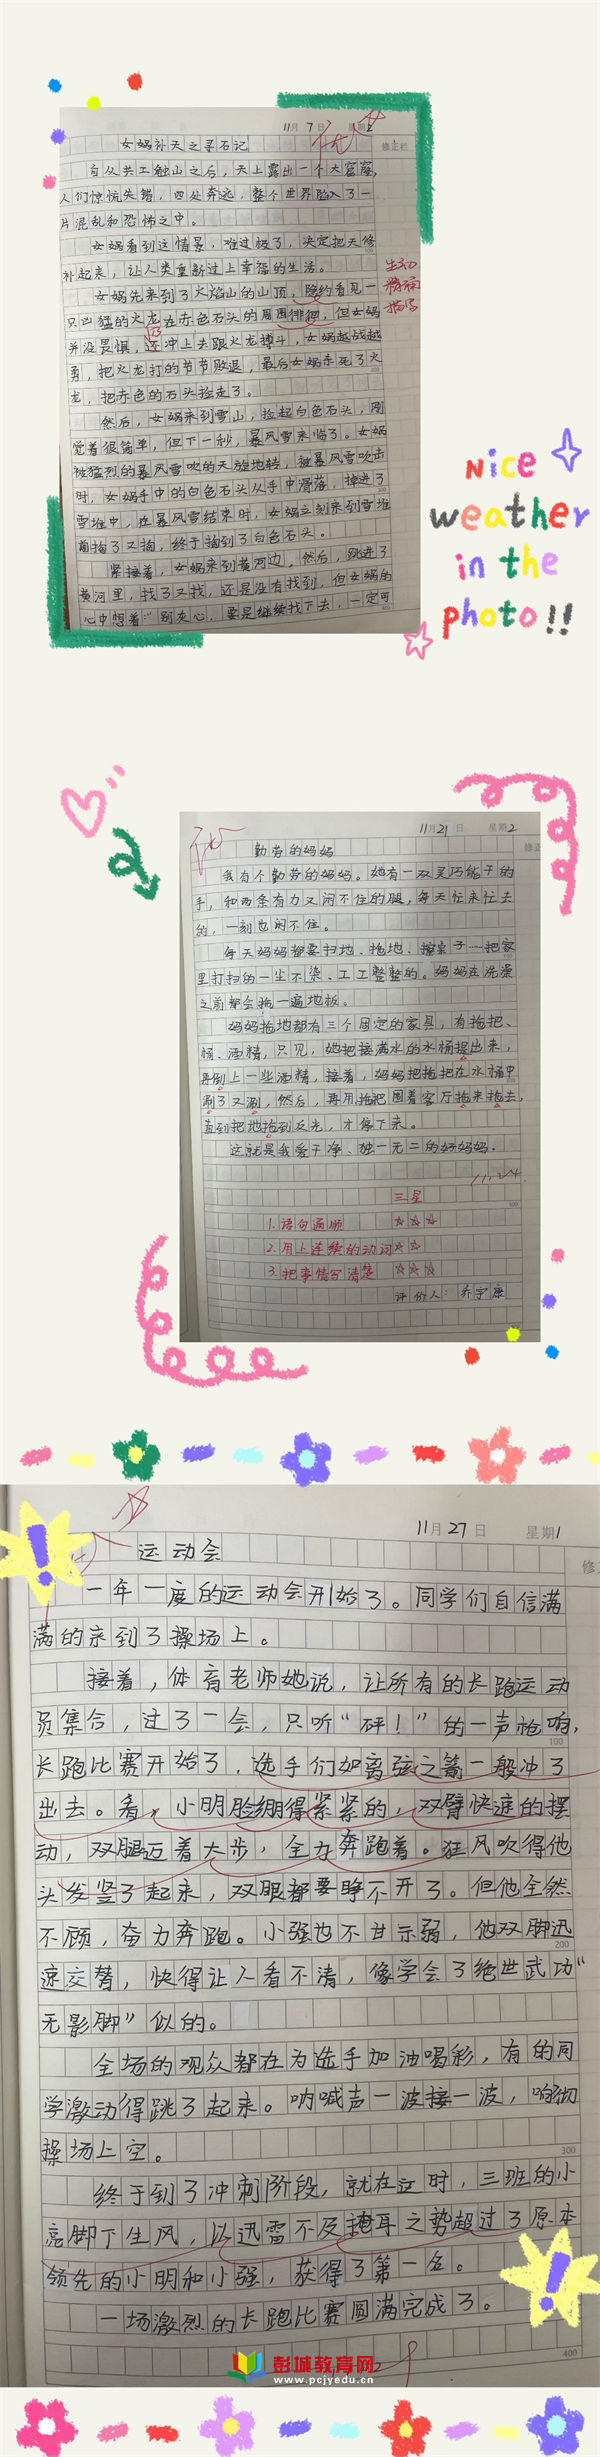 11月7日 星期2
修正栏
优
女娲补天之寻石记
自从共工触山之后，天上露出一个大窟窿，
人们惊慌失错，四处奔逃，整个世界陷入了一
片混乱和恐怖之中。
女娲看到这情景，难过极了，决定把天修
补起来，让人类重新过上幸福的生活。
女娲先来到了火焰山的山顶，隐约看见一
只凶猛的火龙在赤色石头的周围徘徊，但女娲
并没畏惧，还冲上去跟火龙搏斗，女娲越战越
勇，把火龙打的节节败退，最后女娲杀死了火
龙，把赤色的石头捡走了。
然后，女娲来到雪山，捡起白色石头，刚
觉着很简单，但下一秒，暴风雪来临了。女娲
被猛烈的暴风雪吹的天旋地转，被暴风雪吹击
时，女娲手中的白色石头从手中滑落，掉进了
雪堆中，在暴风雪结束时，女娲立刻来到雪堆
前掏了又掏，终于掏到了白色石头。
紧接着，女娲来到黄河边，然后，跳进了
黄河里，找了又找，还是没有找到，但女娲的
心中想着："别灰心，要是继续找下去，一定可
生动
描写
Nice
weather
in the
photo!!
11月21日 星期2
修正
勤劳的妈妈
我有个勤劳的妈妈。她有一双灵巧能干的
手，和两条有力又闲不住的腿，每天忙来忙去
的，一刻也闲不住。
每天妈妈都要扫地、拖地、擦桌子……把家
里打扫的一尘不染、工工整整的。妈妈在洗澡
之前都会拖一遍地板。
妈妈拖地都有三个固定的家具，有拖把、
桶、酒精，只见，她把接满水的水桶提出来，
再倒上一些酒精，接着，妈妈把拖把在水桶中
涮了又涮，然后，再用拖把围着客厅拖来拖去，
直到把地拖到反光，才停下来。
这就是我爱干净、独一无二的好妈妈。
11.24
三星
1.语句通顺 ☆☆☆
2.用上连续的动词☆☆
3.把事情写清楚 ☆☆☆
评价人：乔宇康
11月27日 星期1
修正
运动会
一年一度的运动会开始了。同学们自信满
满的来到了操场上。
接着，体育老师她说，让所有的长跑运动
员集合，过了一会，只听“砰！”的一声枪响，
长跑比赛开始了，选手们如离弦之箭一般冲了
出去。看，小明脸绷得紧紧的，双臂快速的摆
动，双腿迈着大步，全力奔跑着。狂风吹得他
头发竖了起来，双眼都要睁不开了。但他全然
不顾，奋力奔跑。小强也不甘示弱，他双脚迅
速交替，快得让人看不清，像学会了绝世武功“
无影脚”似的。
全场的观众都在为选手加油喝彩，有的同
学激动得跳了起来。呐喊声一波接一波，响彻
操场上空。
终于到了冲刺阶段，就在这时，三班的小
亮脚下生风，以迅雷不及掩耳之势超过了原本
领先的小明和小强，获得了第一名。
一场激烈的长跑比赛圆满完成了。
彭城教育网
www.pcjyedu.cn